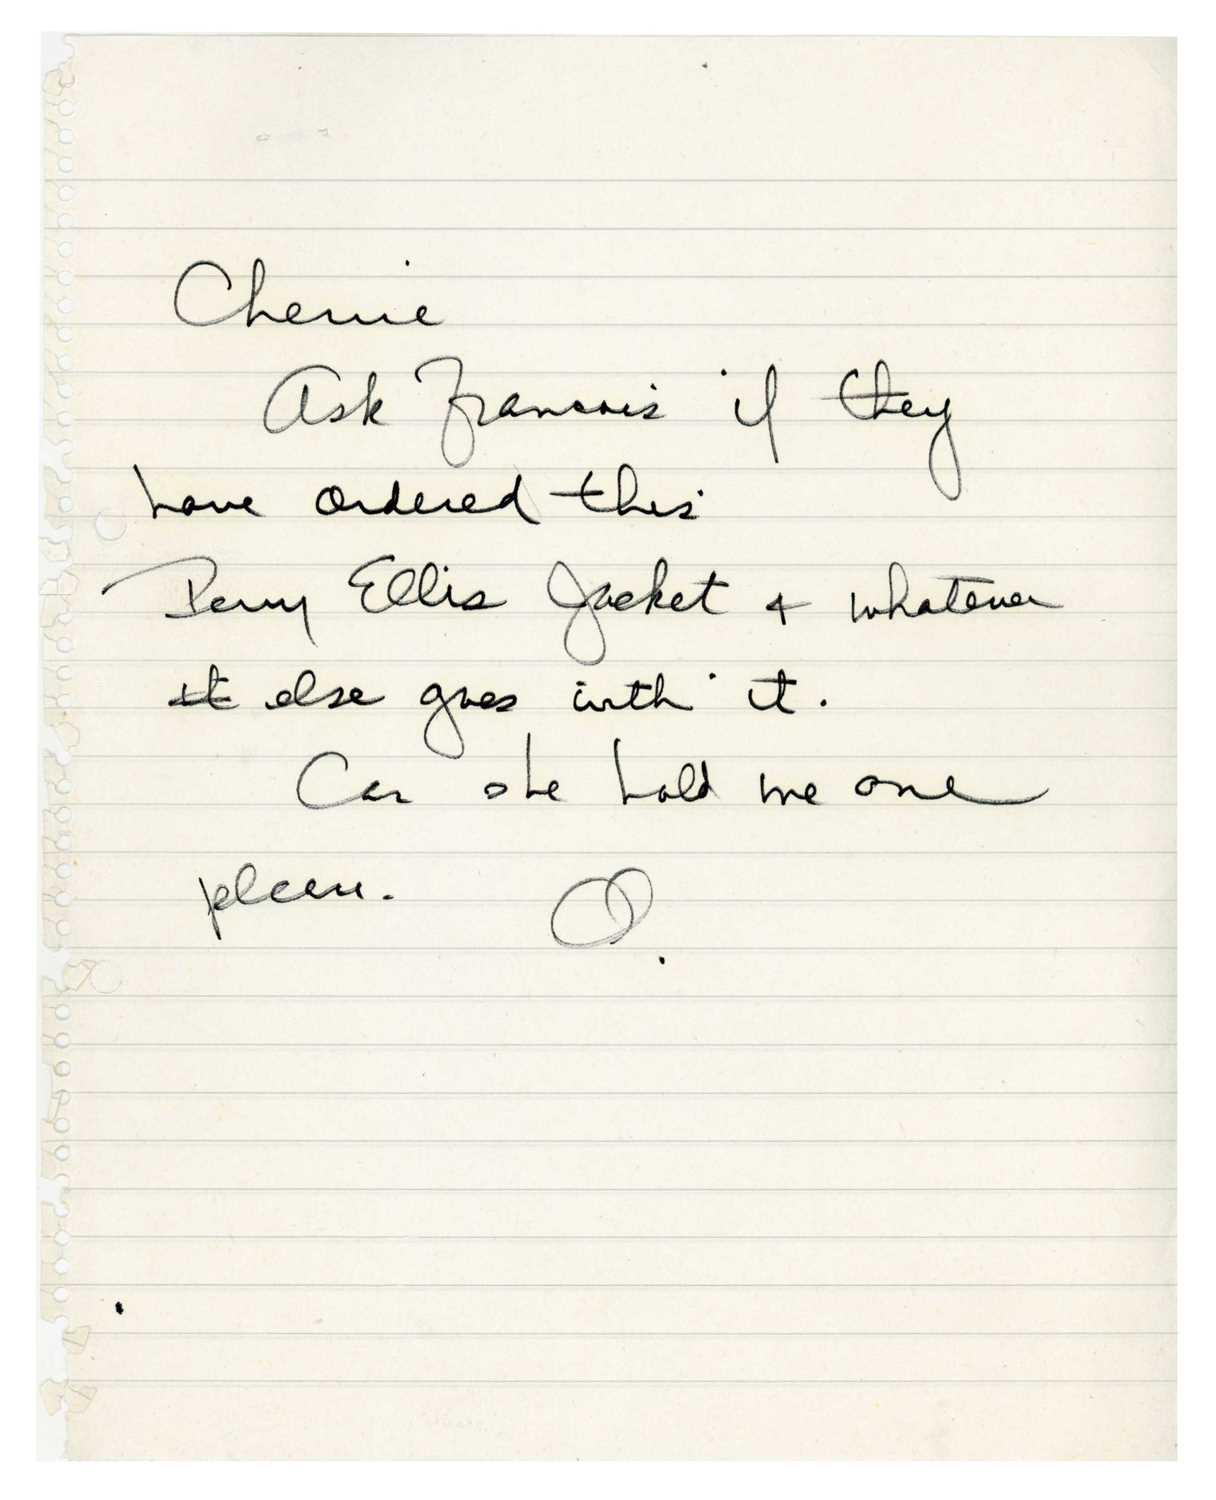 Cherrie
Ask Francois if they
have ordered this
Perry Ellis Jacket + whatever
it else goes with it.
Can she hold me one
please. O.